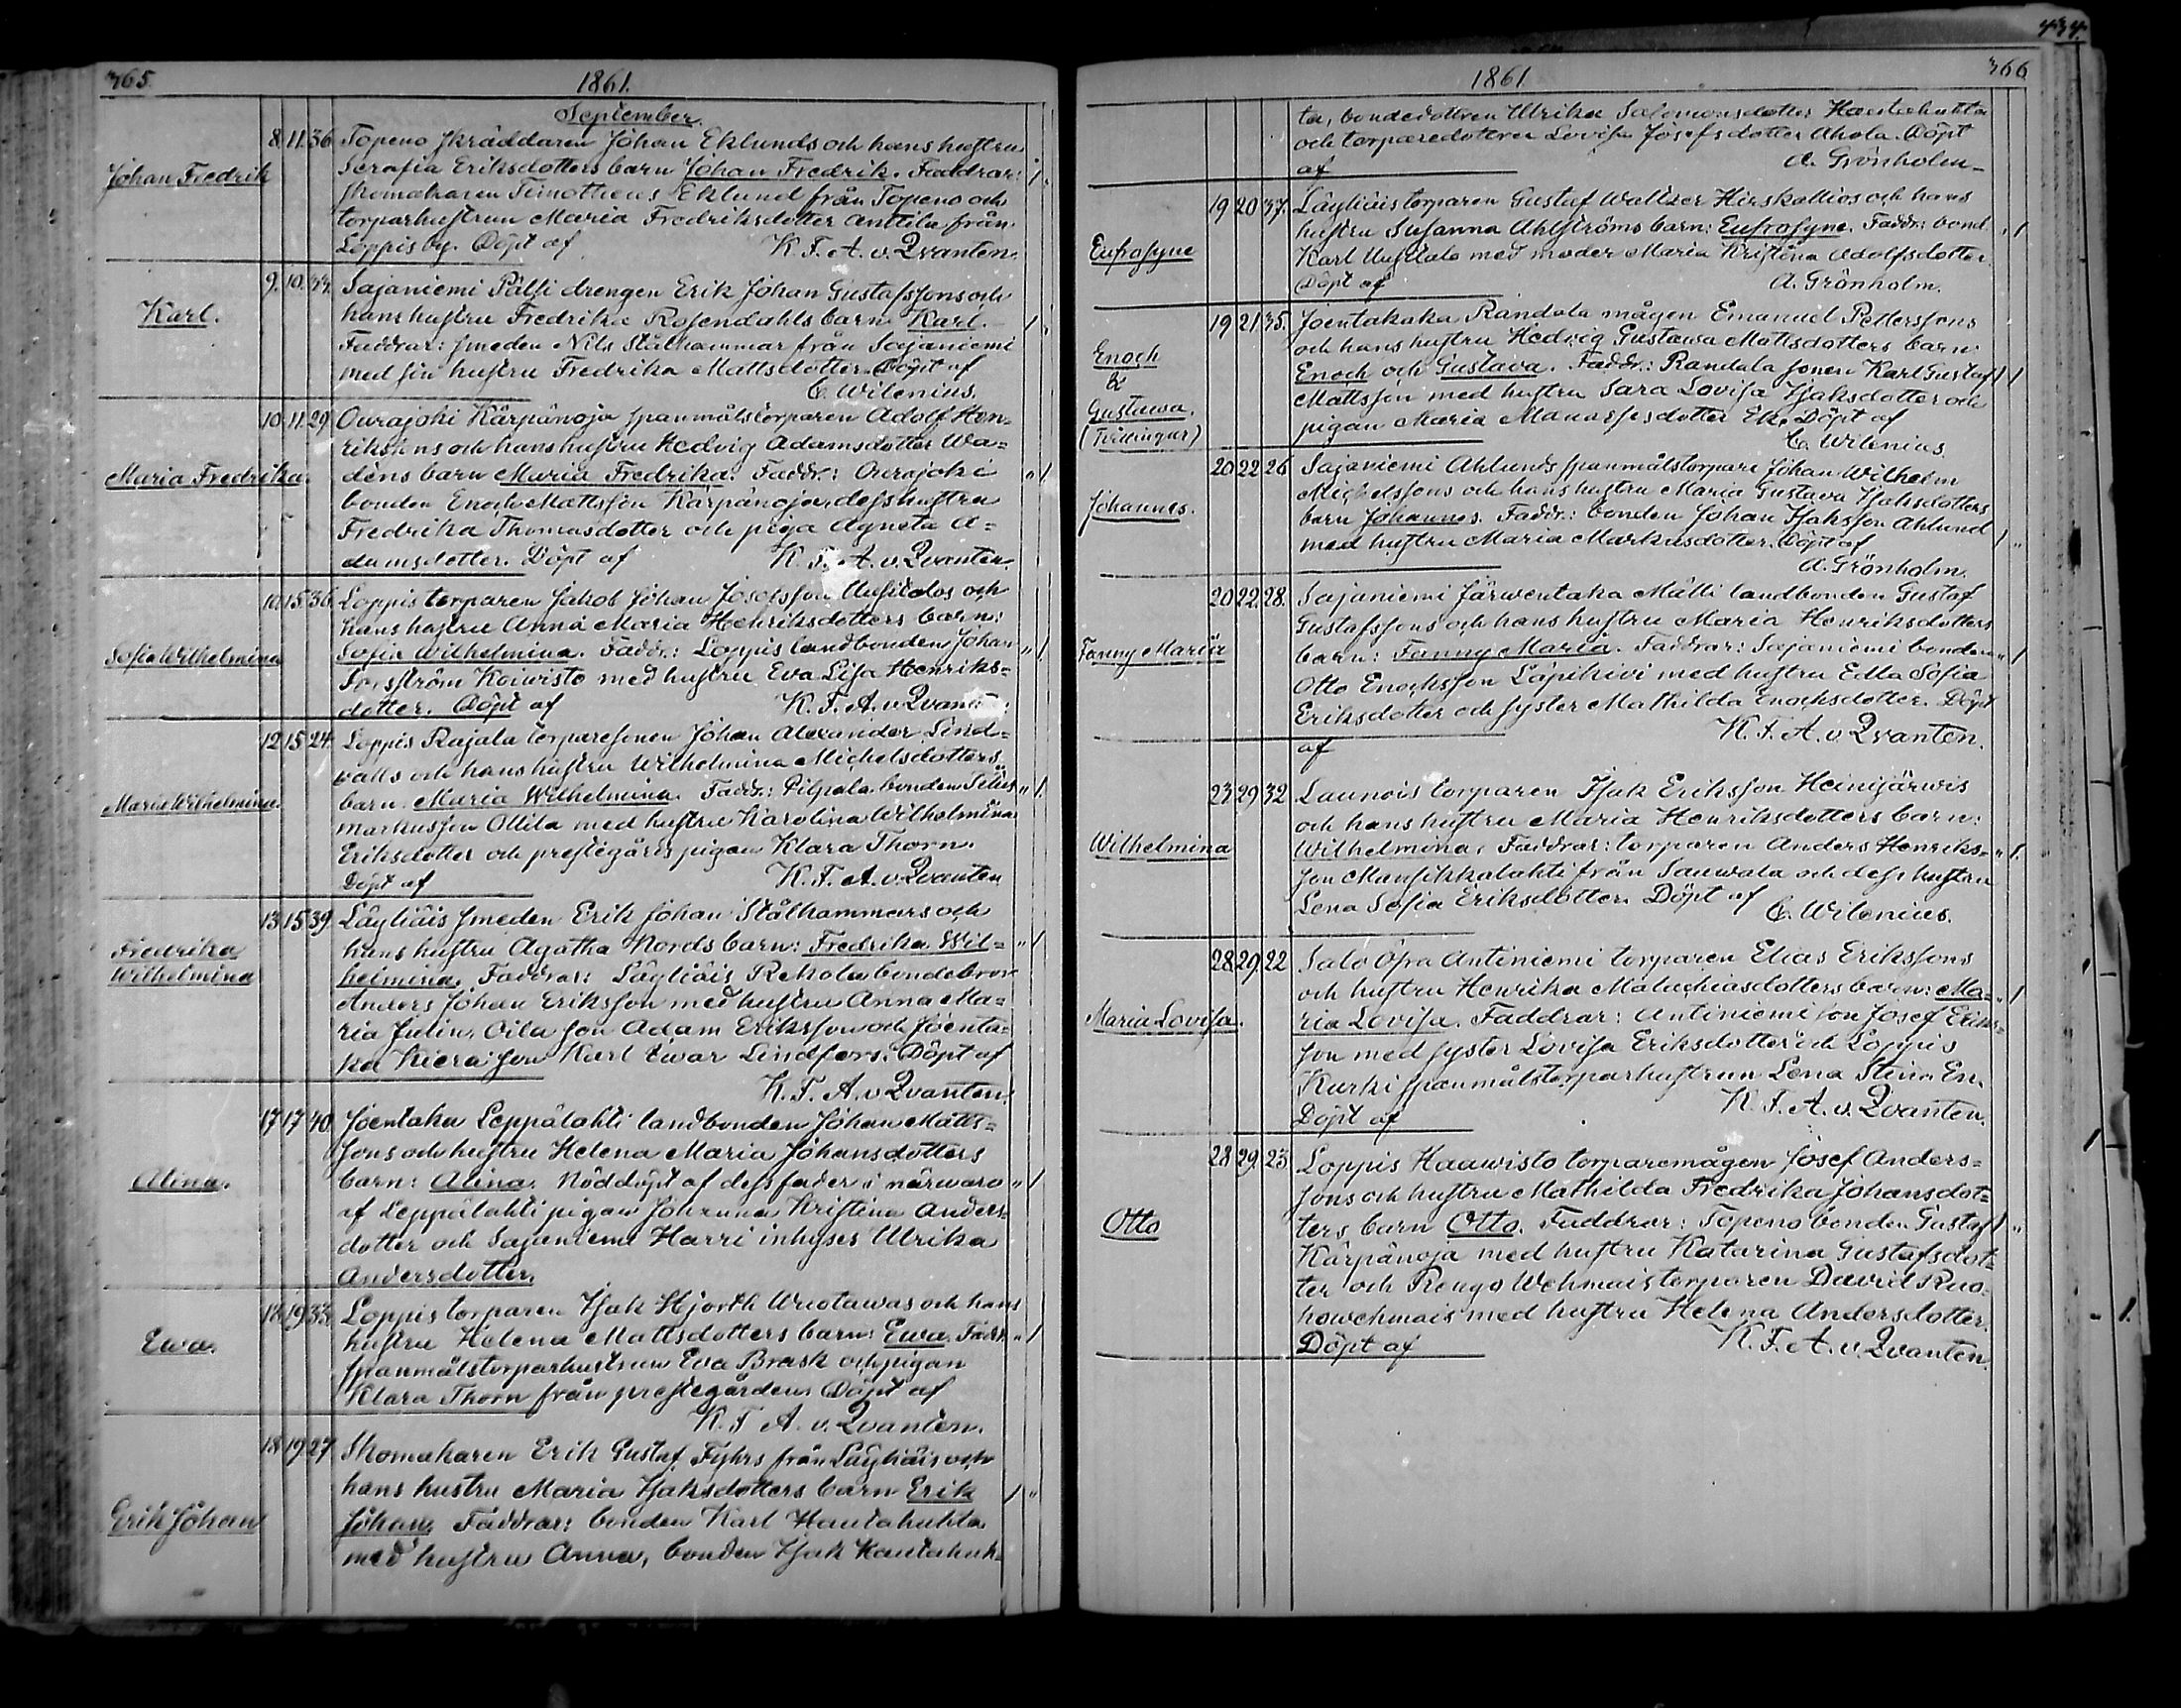 434.
365.
1861.
September.
Johan Fredrik
8. 11. 36. Topeno skräddaren Johan Eklunds och hans hustru
Serafia Eriksdotters barn Johan Fredrik. Faddrar: 1 "
skomakaren Timotheus Eklund från Topeno och
torparhustrun Maria Fredriksdotter Anttila från
Loppis by. Döpt af K. F. A. v. Qvanten.
Karl.
9. 10. Sajaniemi Pälli drengen Erik Johan Gustafssons och
hans hustru Fredrika Rosendahls barn Karl. 1 "
Faddrar: smeden Nils Stålhammar från Sajaniemi
med sin hustru Fredrika Mattsdotter. Döpt af
C. Wilenius.
Maria Fredrika.
10. 11. 29. Ourajoki Kärpänoja spanmålstorparen Adolf Hen-
rikssons och hans hustru Hedvig Adamsdotter Wa-
déns barn Maria Fredrika. Faddr.: Ourajoki " 1
bonden Enoch Mattsson Kärpänoja, dess hustru
Fredrika Thomasdotter och piga Agneta A-
damsdotter. Döpt af K. F. A. v. Qvanten.
Sofia Wilhelmina
10. 15. 36. Loppis torparen Jakob Johan Josefsson Uusitalos och
hans hustru Anna Maria Henriksdotters barn:
Sofia Wilhelmina. Faddr.: Loppis landbonden Johan " 1
Forsström Koiwisto med hustru Eva Lisa Henriks-
dotter. Döpt af K. F. A. v. Qvanten.
Maria Wilhelmina.
12. 15. 24. Loppis Rajala torparesonen Johan Alexander Lind-
valls och hans hustru Wilhelmina Michelsdotters
barn Maria Wilhelmina. Faddr.: Pilpala bonden Titus " 1.
Markusson Ollila med hustru Karolina Wilhelmina
Eriksdotter och prestegårds pigan Klara Thorn.
Döpt af K. F. A. v. Qvanten
Fredrika
Wilhelmina
13. 15. 39. Läyliäis smeden Erik Johan Stålhammars och
hans hustru Agatha Nords barn: Fredrika Wil- " 1
helmina. Faddrar: Läyliäis Rekola bondebror
Anders Johan Eriksson med hustru Anna Ma-
ria Julin, Oila son Adam Eriksson och Joenta-
ka Kiera son Karl Ewar Lindfors. Döpt af
K. F. A. v. Qvanten.
Alina.
17. 17. 40. Joentaka Leppälahti landbonden Johan Matts-
sons och hustru Helena Maria Johansdotters
barn: Alina. Nöddöpt af dess fader i närwaro " 1
af Leppälahti pigan Johanna Kristina Anders-
dotter och Sajaniemi Harri inhyses Ulrika
Andersdotter.
Ewa.
18. 19. 33. Loppis torparen Isak Hjorth Wuotawas och hans
hustru Helena Mattsdotters barn: Ewa. Faddr. " 1
spanmålstorparhustrun Eva Brask och pigan
Klara Thorn från prestegården. Döpt af
K. F. A. v. Qvanten.
Erik Johan
18. 19. 27. Skomakaren Erik Gustaf Fyhrs från Läyliäis och
hans hustru Maria Isaksdotters barn Erik 1 "
Johan. Faddrar: bonden Karl Hautahuhta
med hustru Anna, bonden Isak Hautahuh-
1861
366
ta, bondedottren Ulrika Salomonsdotter Hautahuhta
och torparedottren Lovisa Josefsdotter Ahola. Döpt
af A. Grönholm.
Eufrosyne
19 20 37. Läyliäis torparen Gustaf Wallder Hirskallios och hans
hustru Susanna Ahlströms barn: Eufrosyne. Faddr.: bond. " 1
Karl Uusitalo med moder Maria Kristina Adolfsdotter.
Döpt af A. Grönholm.
Enoch
&
Gustawa.
(Tvillingar)
19 21 35. Joentakaka Randala mågen Emanuel Petterssons
och hans hustru Hedvig Gustawa Mattsdotters barn:
Enoch och Gustava. Faddr.: Randala sonen Karl Gustaf 1 1
Mattsson med hustru Sara Lovisa Isaksdotter och
pigan Maria Manassesdotter Ek. Döpt af
C. Wilenius.
Johannes.
20 22 26 Sajaniemi Ahlunds spanmålstorpare Johan Wilhelm
Michelssons och hans hustru Maria Gustava Isaksdotters
barn Johannes. Faddr.: bonden Johan Isaksson Ahlund
med hustru Maria Markusdotter. Döpt af 1 "
A. Grönholm.
Fanny Maria
20 22. 28. Sajaniemi Järwentaka Mälli landbonden Gustaf
Gustafssons och hans hustru Maria Henriksdotters
barn: Fanny Maria. Faddrar: Sajaniemi bonden " 1
Otto Enochsson Läpikivi med hustru Edla Sofia
Eriksdotter och syster Mathilda Enochsdotter. Döpt
af K. F. A. v. Qvanten.
Wilhelmina
23 29 32 Launois torparen Isak Eriksson Heinijärwis
och hans hustru Maria Henriksdotters barn:
Wilhelmina. Faddrar: torparen Anders Henriks- " 1.
son Mansikkalahti från Sauwala och dess hustru
Lena Sofia Eriksdotter. Döpt af C. Wilenius.
Maria Lovisa.
28 29. 22 Salo Öfra Antiniemi torparen Elias Erikssons
och hustru Henrika Malachiasdotters barn: Ma- " 1
ria Lovisa. Faddrar: Antiniemi son Josef Eriks-
son med syster Lovisa Eriksdotter och Loppis
Kurki spanmålstorparhustrun Lena Stina En.
Döpt af K. F. A. v. Qvanten.
Otto
28 29. 23. Loppis Haawisto torparemågen Josef Anders-
sons och hustru Mathilda Fredrika Johansdot-
ters barn Otto. Faddrar: Topeno bonden Gustaf 1 "
Kärpänoja med hustru Katarina Gustafsdot-
ter och Rengo Wehmais torparen David Ruo-
howehmais med hustru Helena Andersdotter.
Döpt af K. F. A. v. Qvanten.